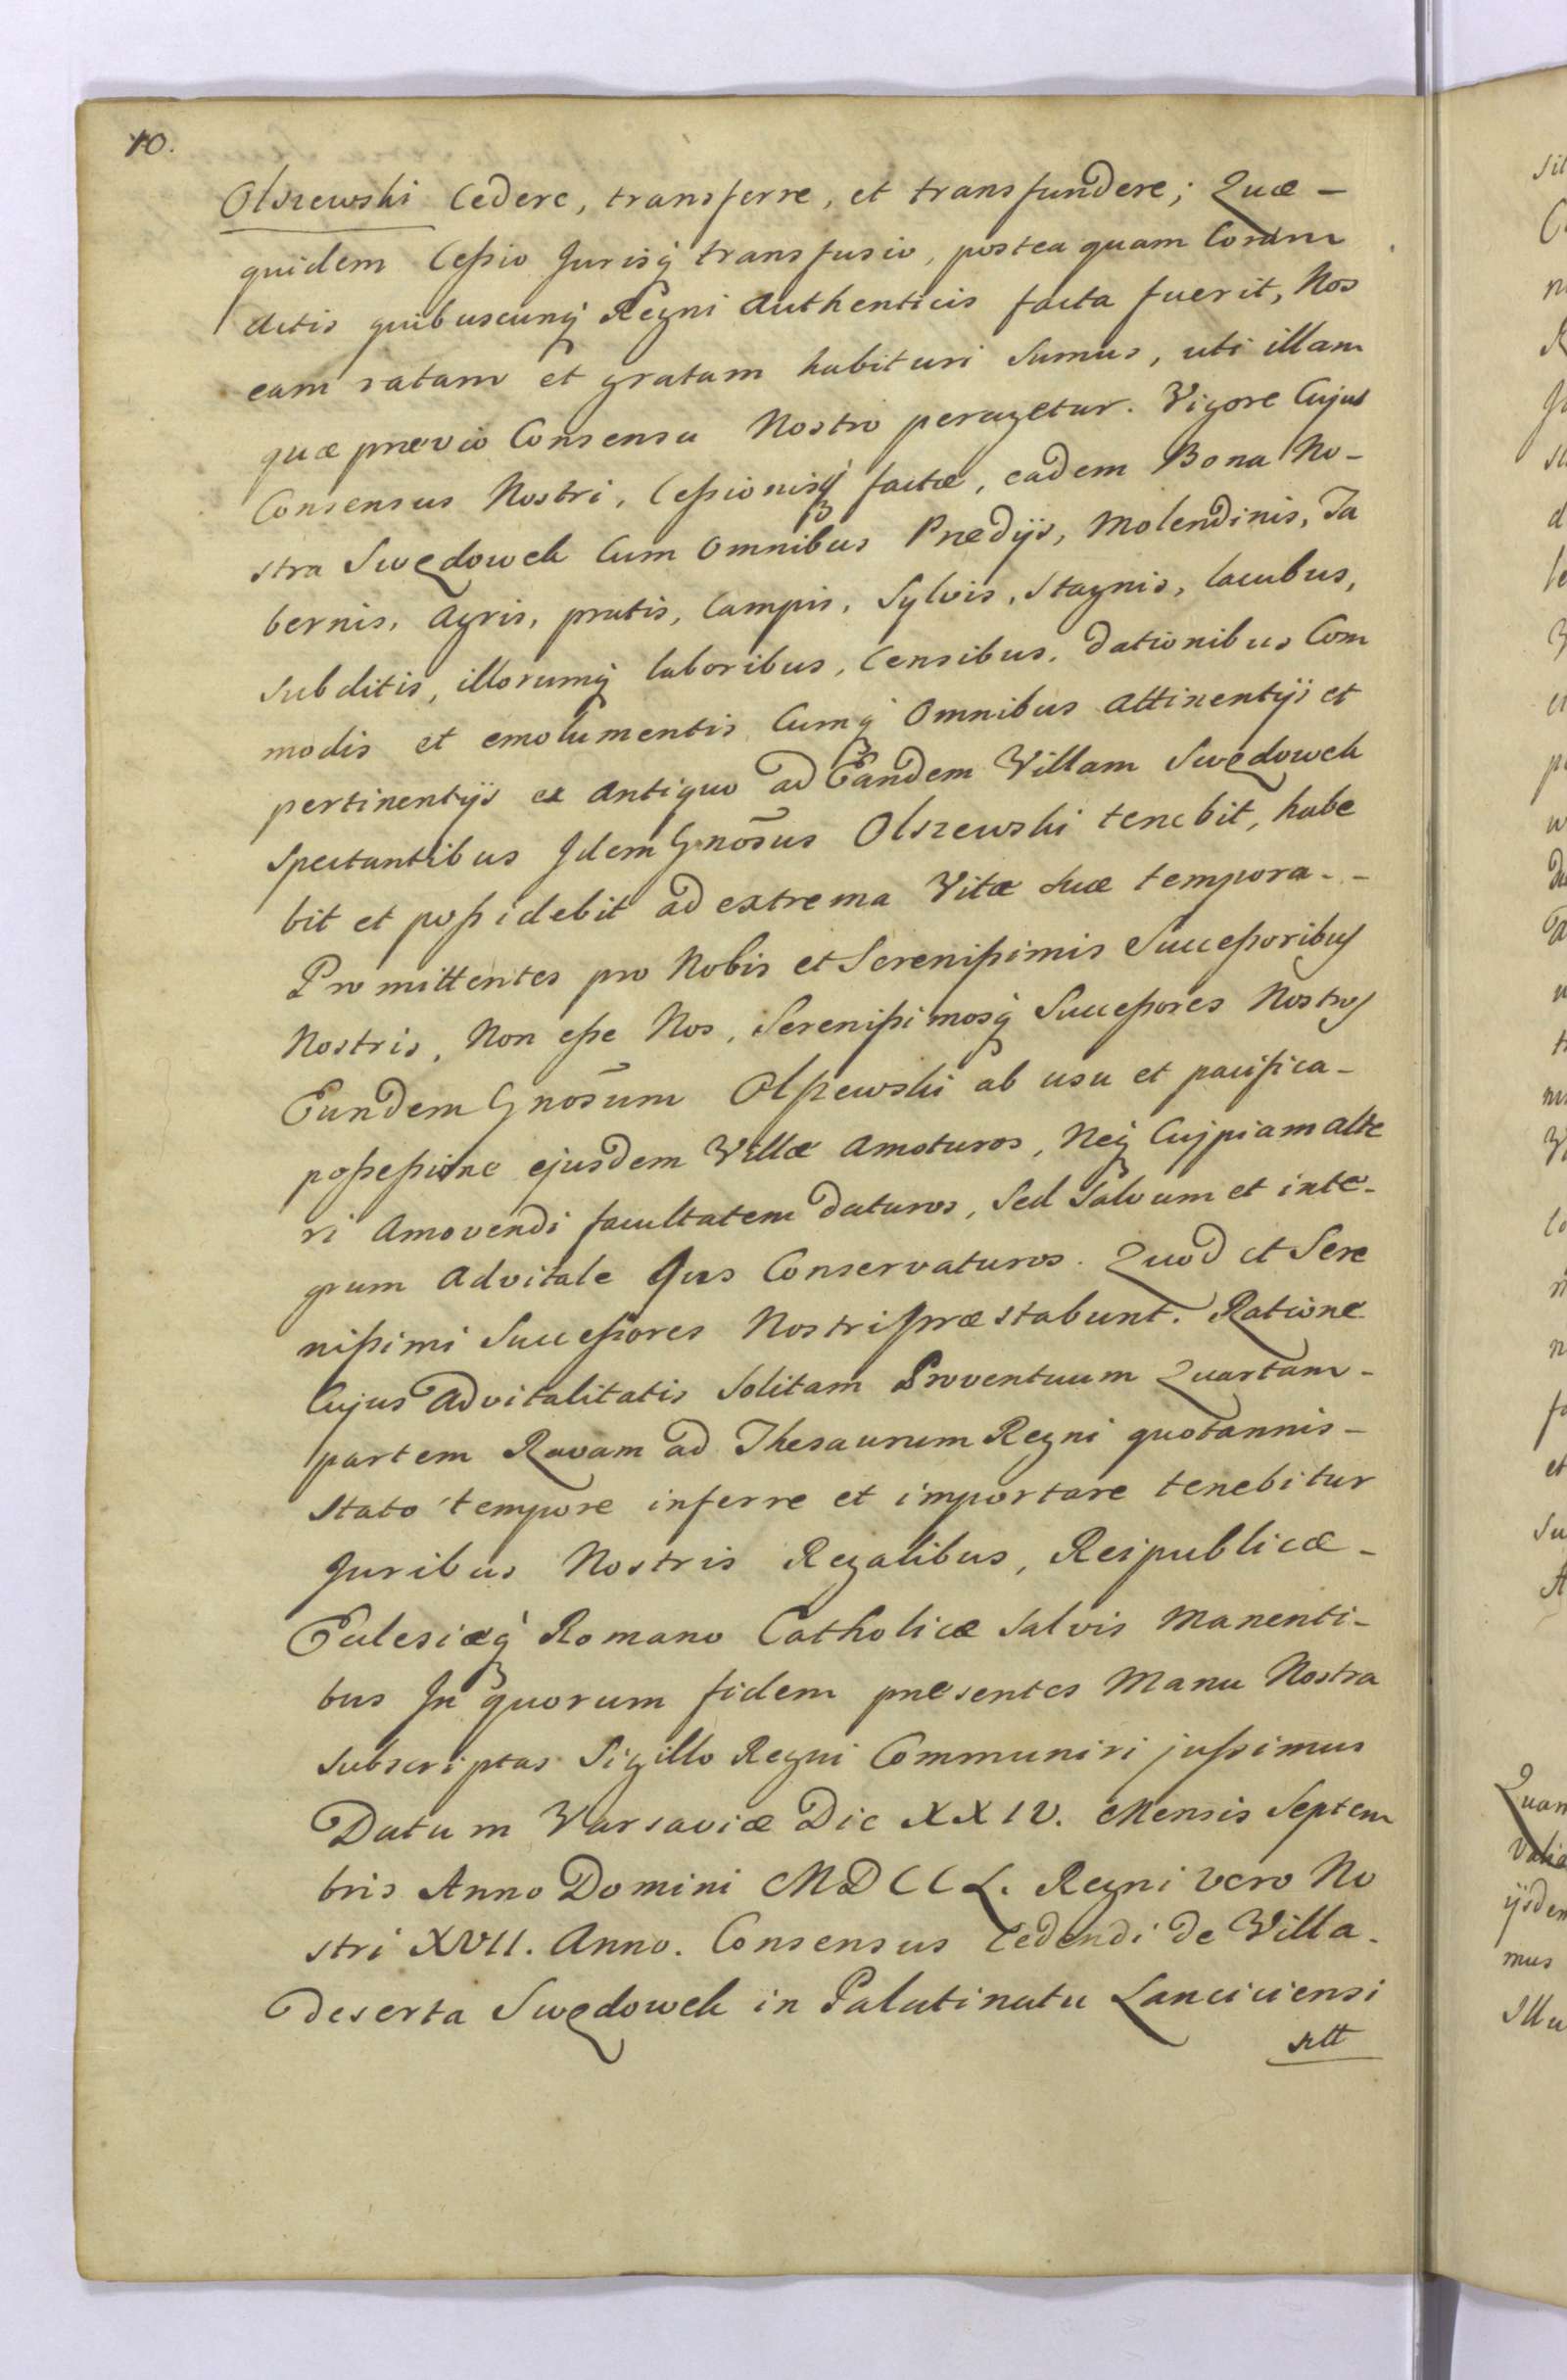 10.
Olszewski Cedere, transferre, et transfundere; Quæ -
quidem Ceßio Jurisq́ transfusio, postea quam Coram
Actis quibuscunq́ Regni Authenticis facta fuerit, Nos
eam ratam et gratam habituri Sumus, uti illam
quæ prævio Consensu Nostro peragetur. Vigore Cujus
Consensus Nostri, Ceßionisq́ factæ, eadem Bona No-
stra Swędowek Cum Omnibus Prædijs, Molendinis, Ta
bernis, Agris, pratis, Campis, Sylvis, Stagnis, lacubus,
Subditis, illorumq́ laboribus, Censibus, Dationibus Com
modis et emolumentis Cumq́ Omnibus Attinentijs et
pertinentijs ex Antiquo ad Eandem Villam Swędowek
Spectantibus Idem Gnōsus Olszewski tenebit, habe
bit et poßidebit ad extrema Vitæ Suæ tempora - -
Promittentes pro Nobis et Serenißimis Succeßoribus
Nostris, Non eße Nos, Serenißimosq́ Succeßores Nostros
Eundem Gnōsum Olszewski ab usu et pacifica -
poßeßione ejusdem Villæ Amoturos, Neq́ Cuipiam alte
ri Amovendi facultatem Daturos, Sed Salvum et inte-
grum Advitale Jus Conservaturos. Quod et Sere
nißimi Succeßores Nostri præstabunt. Ratione
Cujus Advitalitatis Solitam Proventuum Quartam -
partem Ravam ad Thesaurum Regni quotannis -
Stato tempore inferre et importare tenebitur
Juribus Nostris Regalibus, Reipublicæ -
Eclesiæq́ Romano Catholicæ Salvis Manenti-
bus In quorum fidem præsentes Manu Nostra
Subscriptas Sigillo Regni Communiri jußimus
Datum Varsaviæ Die XXIV. Mensis Septem
bris Anno Domini MDCCL. Regni Vero No
stri XVII. Anno. Consensus Cedendi de Villa -
Deserta Swędowek in Palatinatu Lanciciensi